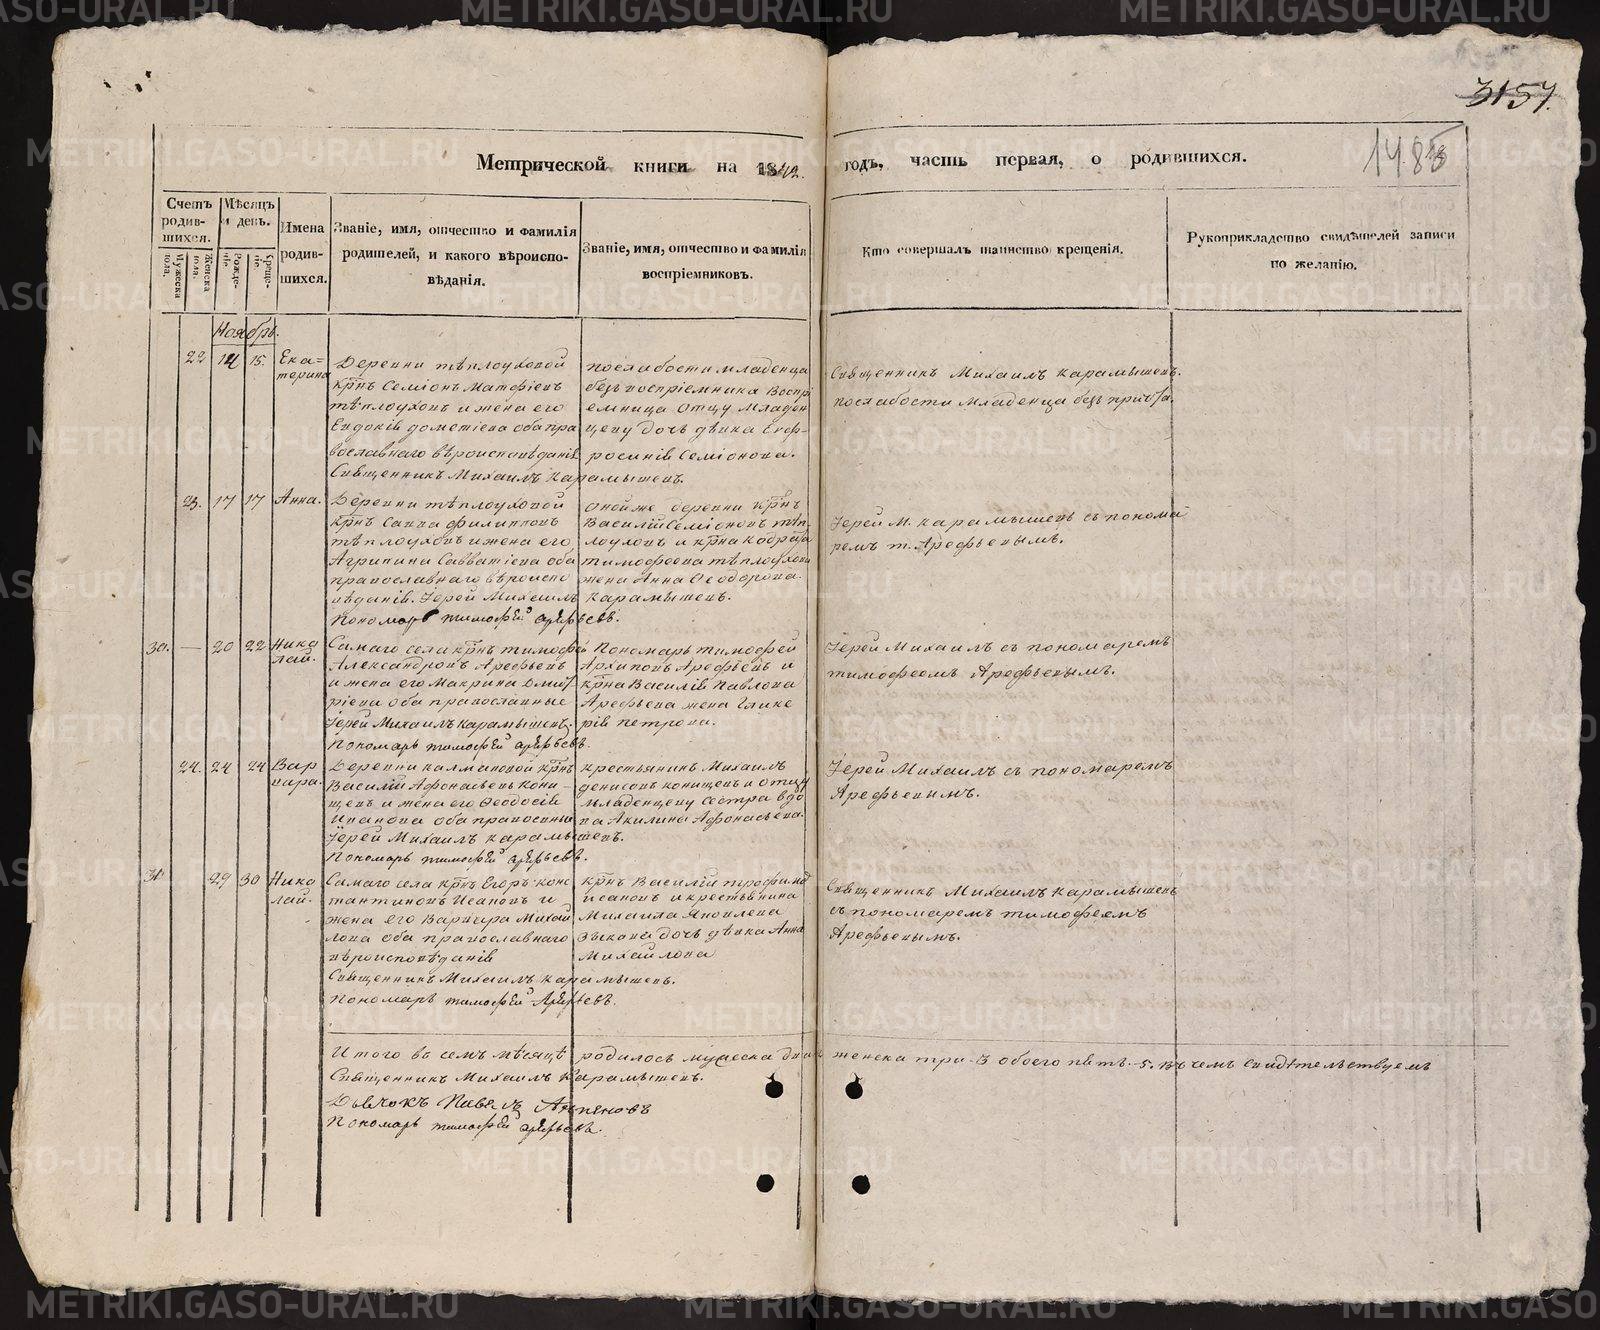 3157.
1485
Метрической книги на 1842. годъ, часть первая, о родившихся.
Счетъ родив-шихся.
Мужеска пола.
Женска пола.
Мѣсяцъ и день.
Рожде-нія.
Креще-нія.
Имена родив-шихся.
Званіе, имя, отчество и фамилія
родителей, и какого вѣроиспо-
вѣданія.
Званіе, имя, отчество и фамилія
воспріемниковъ.
Кто совершалъ таинство крещенія.
Рукоприкладство свидѣтелей записи
по желанію.
Ноябрь.
22 14 15. Ека=
терина
Деревни тѣплоуховой
крнъ Семіонъ Матфіевъ
тѣплоуховъ и жена его
Евдокія дометіева оба пра
вославнаго вѣроисповѣданія
Священникъ Михаилъ Карамышевъ.
послабости младенца
безъ воспріемника Воспрі
емница Отцу Младен
цеву дочь дѣвка Ефф-
росинія Семіонова.
Священникъ Михаилъ Карамышевъ.
послабости Младенца безъ причта.
23. 17 17 Анна.
Деревни тѣплоуховой
крнъ Савва филипповъ
тѣплоуховъ и жена его
Агрипина Савватіева оба
православнаго вѣроиспо
вѣданія. Іерей Михаилъ Карамышевъ.
Пономарь тимофей арефьевъ.
оной же деревни крнъ
Василій Семіоновъ тѣп-
лоуховъ и крна кодрата
тимофеева тѣплоухова
жена Анна Феодорова.
Іерей М. карамышевъ съ понома
ремъ т. Арефьевымъ.
30. — 20 22 Нико
лай.
Самаго села крнъ тимофей
Александровъ Арефьевъ
и жена его Макрина Дмит
ріева оба православные
Іерей Михаилъ карамышевъ.
Пономарь тимофей арефьевъ.
Пономарь тимофей
Архиповъ Арефьевъ и
крна Василія Павлова
Арефьева жена Глике
рія петрова.
Іерей Михаилъ съ пономаремъ
тимофеомъ Арефьевымъ.
24. 24 24 Вар
вара.
Деревни калмаковой крнъ
Василій Афонасьевъ Кони-
щевъ и жена его Феодосія
Иванова оба православны
Іерей Михаилъ карамышевъ.
Пономарь тимофей арефьевъ.
крестьянинъ Михаилъ
денисовъ конищевъ и отцу
младенцеву сестра вдо
ва Акилина Афонасьева.
Іерей Михаилъ съ пономаремъ
Арефьевымъ.
31 29 30 Нико
лай.
Самаго села крнъ Егоръ конс
тантиновъ Исаковъ и
жена его Варвара Михай
лова оба православнаго
вѣроисповѣданія
Священникъ Михаилъ карамышевъ.
Пономарь тимофей Арефьевъ.
крнъ Василій трофимов
исаковъ и крестьянина
Михаила Яковлева
Зыкова дочь дѣвка Анна
Михайлова
Священникъ Михаилъ Карамышевъ
съ пономаремъ тимофеемъ
Арефьевымъ.
Итого въ семъ мѣсяцѣ родилось мужеска два женска три-3 обоего пять.-5. въ чемъ свидѣтельствуемъ
Священникъ Михаилъ Карамышевъ.
Дьячокъ Павелъ
Пономарь тимофей арефьевъ.
METRIKI.GASO-URAL.RU